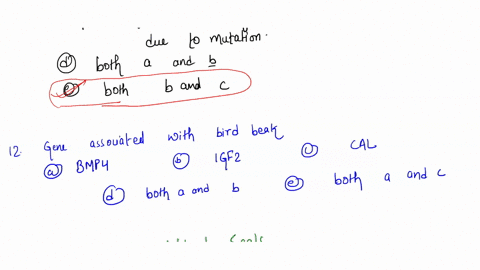 due to mutation.
(d) both a and b
(e) both b and c
12. Gene associated with bird beak
(a) BMP4 (b) IGF2 (c) CAL
(d) both a and b (e) both a and c